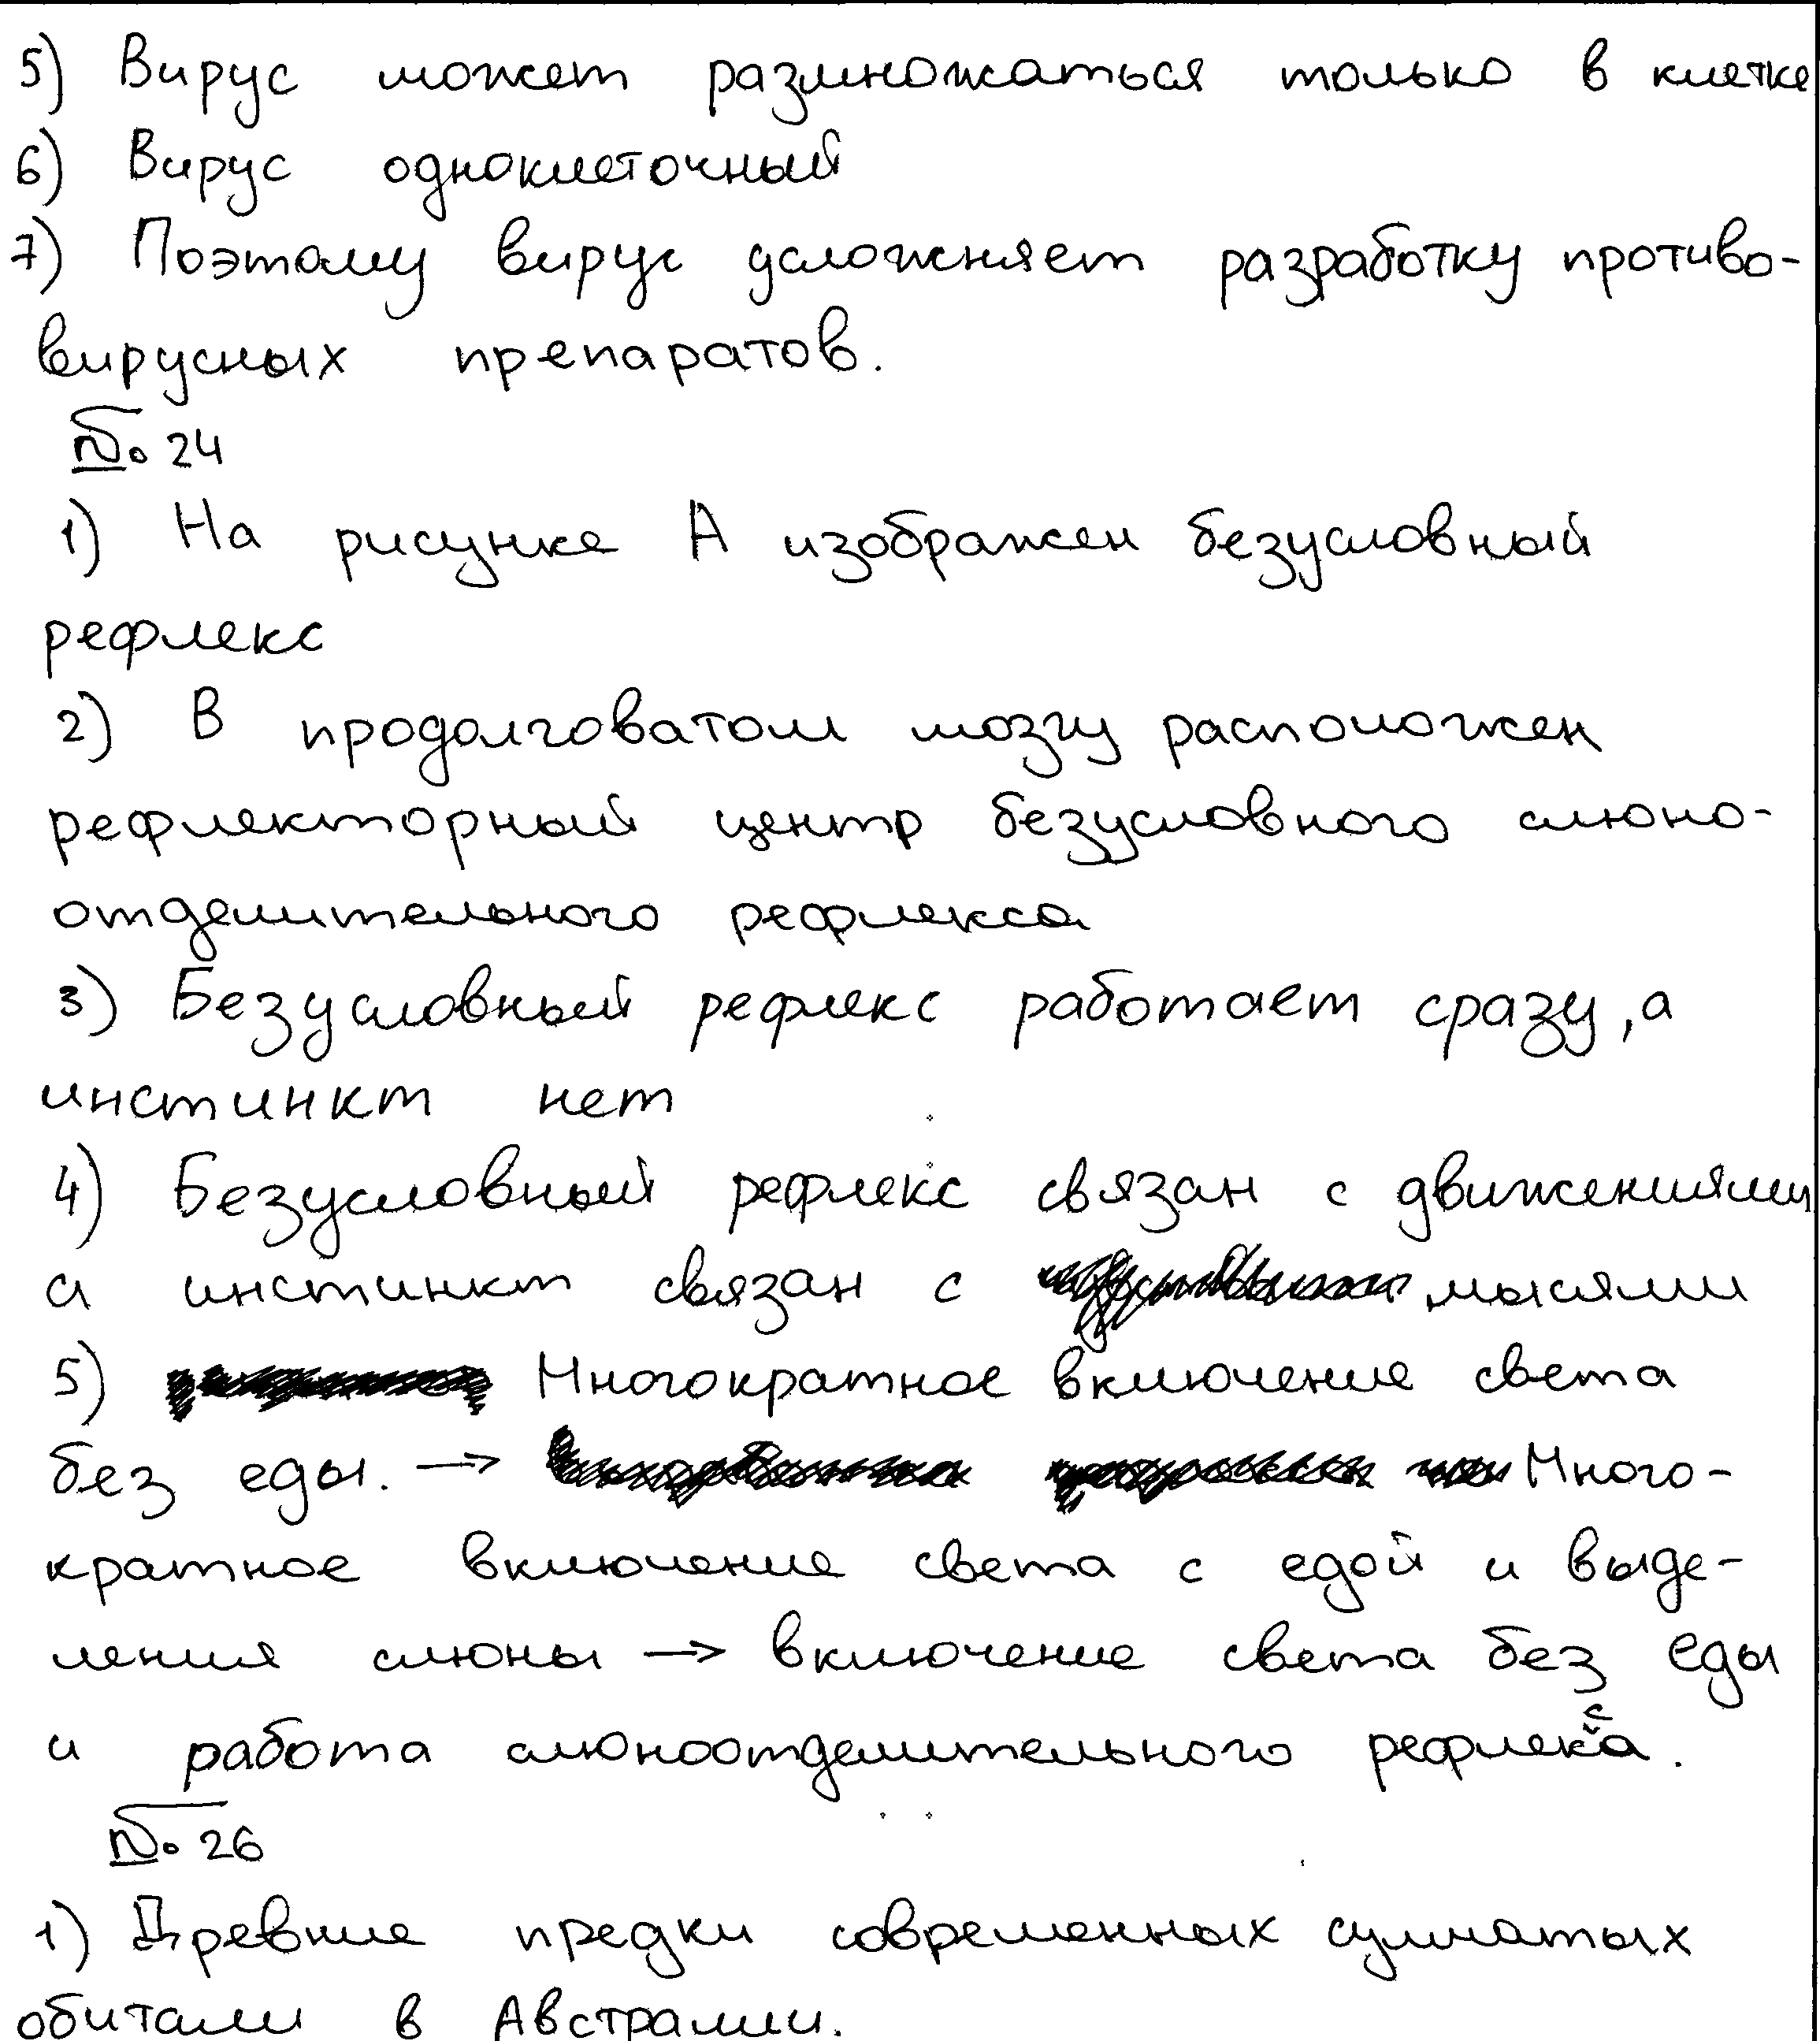 5) Вирус может размножаться только в клетке
6) Вирус одноклеточный
7) Поэтому вирус усложняет разработку противо-
вирусных препаратов.
№ 24
1) На рисунке А изображен безусловный
рефлекс
2) В продолговатом мозгу расположен
рефлекторный центр безусловного слюно-
отделительного рефлекса
3) Безусловный рефлекс работает сразу, а
инстинкт нет
4) Безусловный рефлекс связан с движениями
а инстинкт связан с мыслями
5) Многократное включение света
без еды. → Много-
кратное включение света с едой и выде-
ления слюны → включение света без еды
и работа слюноотделительного рефлекса.
№ 26
1) Древние предки современных сумчатых
обитали в Австралии.